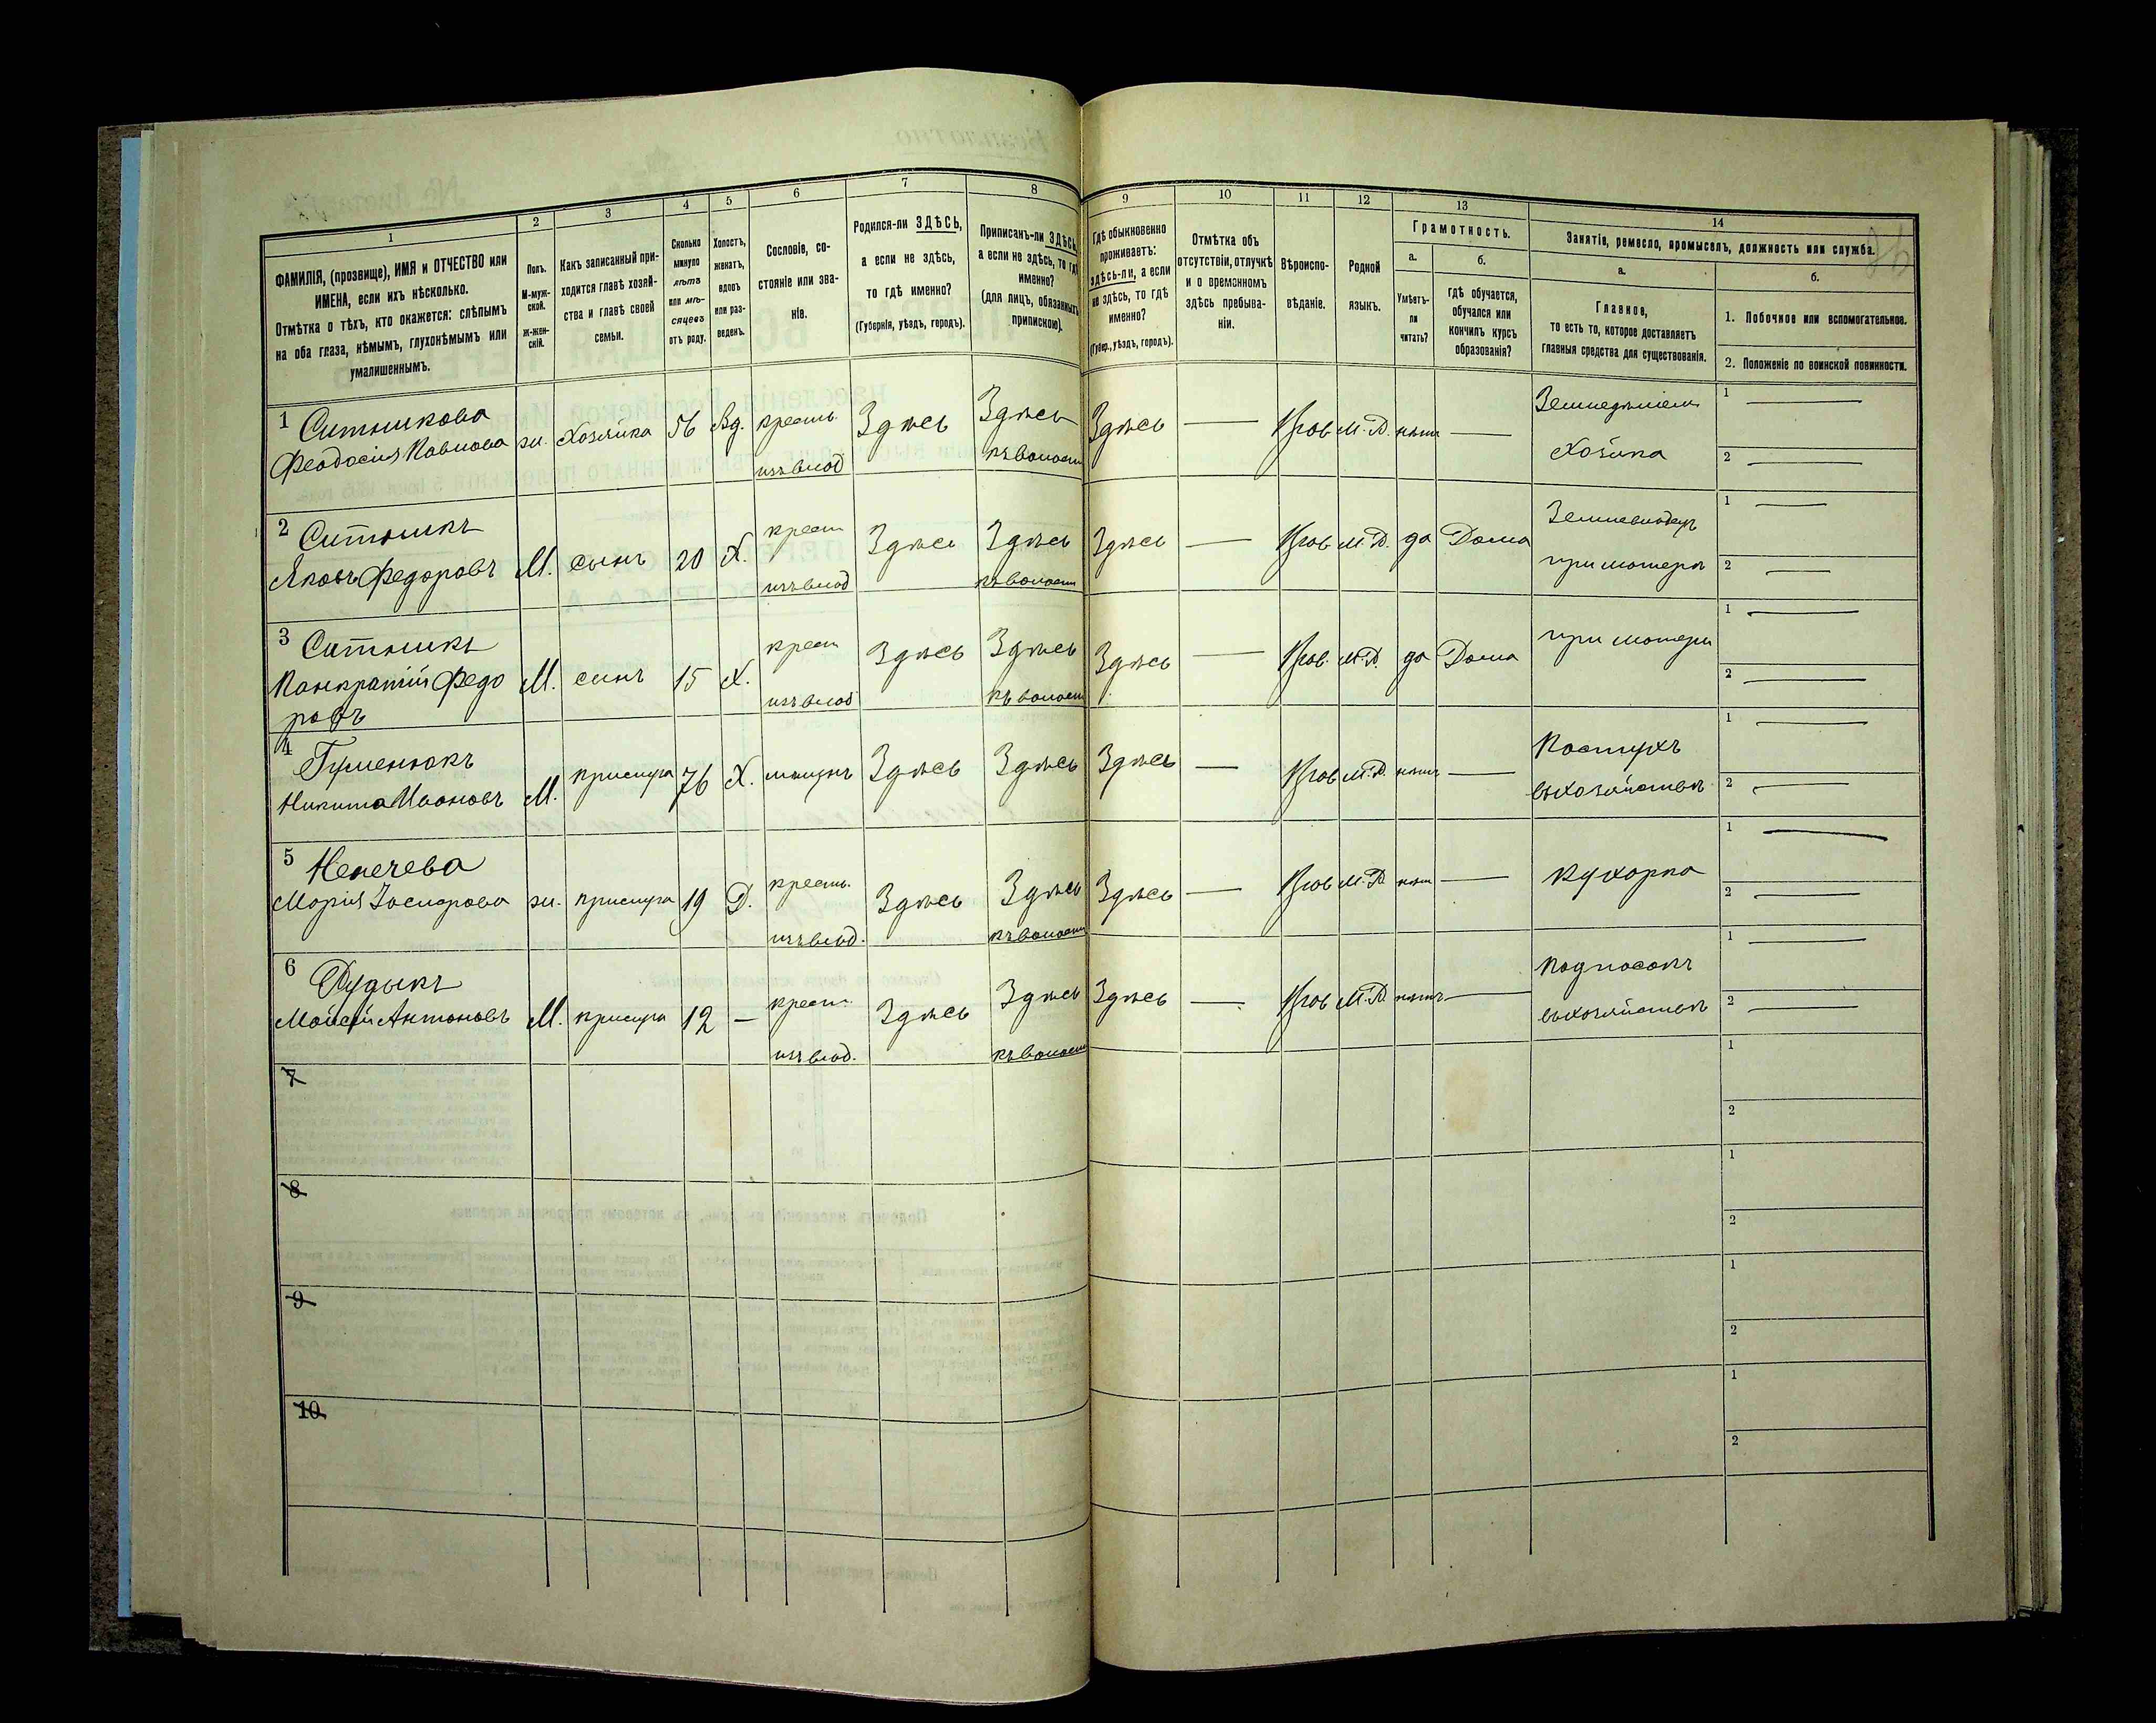 1 2 3 4 5 6 7 8 9 10 11 12 13 14
ФАМИЛІЯ, (прозвище), ИМЯ и ОТЧЕСТВО или
ИМЕНА, если ихъ нѣсколько.
Отмѣтка о тѣхъ, кто окажется: слѣпымъ
на оба глаза, нѣмымъ, глухонѣмымъ или
умалишеннымъ.
Полъ.
М-муж-
ской.
Ж-жен-
скій.
Какъ записанный при-
ходится главѣ хозяй-
ства и главѣ своей
семьи.
Сколько
минуло
лѣтъ
или мѣ-
сяцевъ
отъ роду.
Холостъ,
женатъ,
вдовъ
или раз-
веденъ.
Сословіе, со-
стояніе или зва-
ніе.
Родился-ли ЗДѢСЬ,
а если не здѣсь,
то гдѣ именно?
(Губернія, уѣздъ, городъ).
Приписанъ-ли ЗДѢСЬ,
а если не здѣсь, то гдѣ
именно?
(для лицъ, обязанныхъ
припискою).
Гдѣ обыкновенно
проживаетъ:
здѣсь-ли, а если
не здѣсь, то гдѣ
именно?
(Губер., уѣздъ, городъ).
Отмѣтка объ
отсутствіи, отлучкѣ
и о временномъ
здѣсь пребыва-
ніи.
Вѣроиспо-
вѣданіе.
Родной
языкъ.
Грамотность.
а.
Умѣетъ-
ли
читать?
б.
гдѣ обучается,
обучался или
кончилъ курсъ
образованія?
Занятіе, ремесло, промыселъ, должность или служба.
а.
Главное,
то есть то, которое доставляетъ
главныя средства для существованія.
б.
1. Побочное или вспомогательное.
2. Положеніе по воинской повинности.
1 Ситникова
Феодосія Павлова ж. Хозяйка 56 Вд. крестъ. Здѣсь Здѣсь Здѣсь — Прав М.Р. нѣтъ — Земледѣліемъ 1 —
изъ влад къ волости Хозяйка 2 —
2 Ситникъ
Яковъ Федоровъ М. сынъ 20 Х. крест Здѣсь Здѣсь Здѣсь — Прав М.Р. да Дома 1 —
изъ влад къ волости при матери 2 —
3 Ситникъ
Панкратій Федо М. сынъ 15 Х. крест Здѣсь Здѣсь Здѣсь — Прав. М.Р. да Дома при матери 1 —
ровъ изъ влад къ волости 2 —
4 Гуменюкъ
Никита Ивановъ М. прислуга 76 Х. Здѣсь Здѣсь Здѣсь — Прав М.Р. нѣтъ — Пастухъ 1 —
въ хозяйствѣ 2 —
5
Марія ж. прислуга 19 Д. крестъ. Здѣсь Здѣсь Здѣсь — Прав М.Р. нѣт — Кухарка 1 —
изъ влад. къ волости 2 —
6 Дудыкъ
Мойсей Антоновъ М. прислуга 12 — крест. Здѣсь Здѣсь Здѣсь — Прав М.Р. нѣтъ — Подпасокъ 1 —
изъ влад. къ волости въ хозяйствѣ 2 —
7 1
2
8 1
2
9 1
2
10 1
2